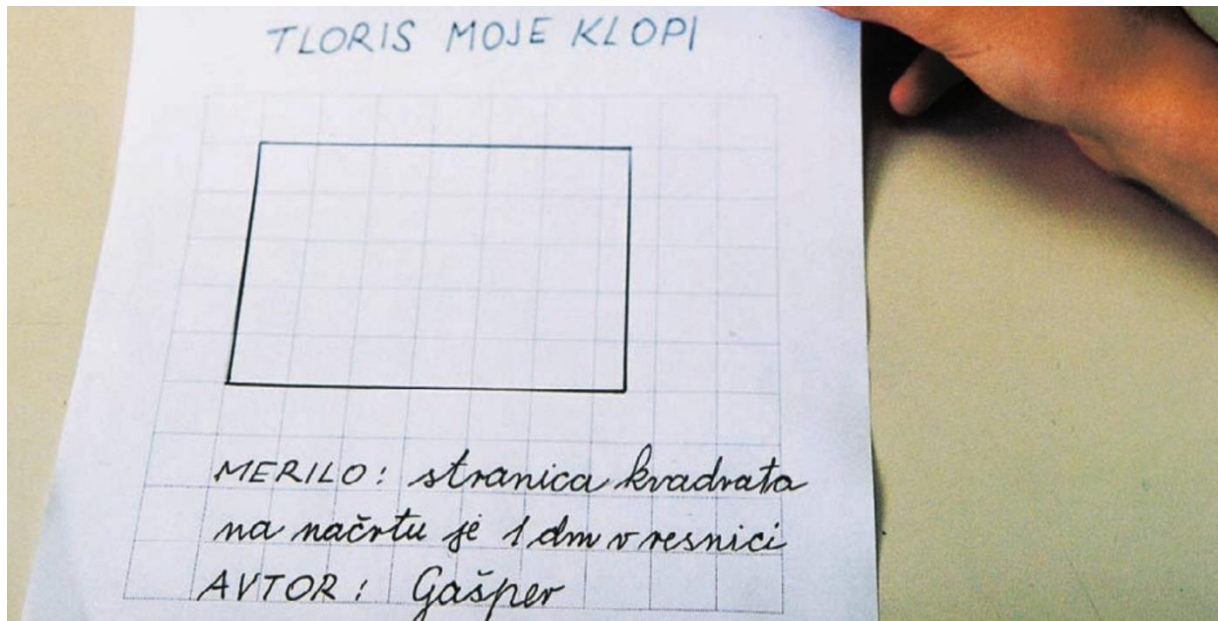 TLORIS MOJE KLOPI
MERILO: stranica kvadrata
na načrtu je 1 dm v resnici
AVTOR: Gašper